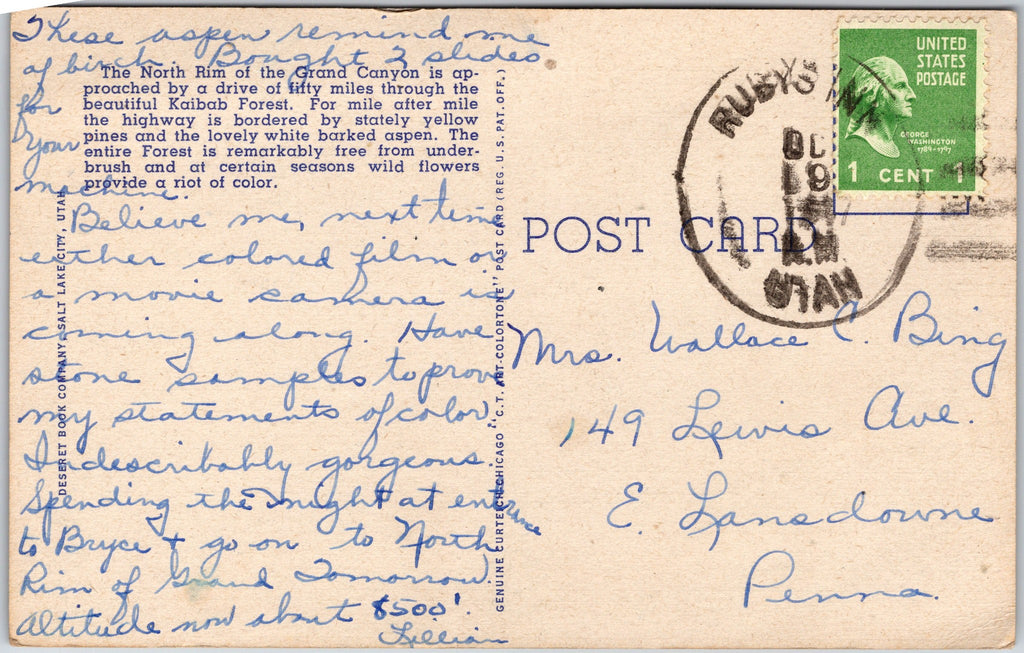 These aspen remind me
of birch. Bought 2 slides
for
your
machine.
The North Rim of the Grand Canyon is ap-
proached by a drive of fifty miles through the
beautiful Kaibab Forest. For mile after mile
the highway is bordered by stately yellow
pines and the lovely white barked aspen. The
entire Forest is remarkably free from under-
brush and at certain seasons wild flowers
provide a riot of color.
Believe me, next time
either colored film or
a movie camera is
coming along. Have
stone samples to prove
my statements of color.
Indescribably gorgeous.
Spending the night at entrance
to Bryce + go on to North
Rim of Grand Tomorrow.
Altitude now about 8500'.
Lillian
DESERET BOOK COMPANY, SALT LAKE CITY, UTAH
GENUINE CURTEICH-CHICAGO "C.T. ART-COLORTONE" POST CARD (REG. U.S. PAT. OFF.)
POST CARD
RUBYS INN
UTAH
UNITED
STATES
POSTAGE
GEORGE
WASHINGTON
1789-1797
1 CENT 1
Mrs. Wallace C. Bing
149 Lewis Ave.
E. Lansdowne
Penna.